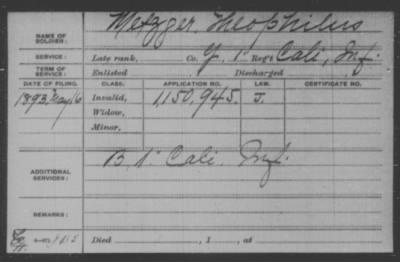 NAME OF SOLDIER: Metzger, Theophilus
SERVICE: Late rank, Co. G, 1" Reg't Cali, Inf.
TERM OF SERVICE: Enlisted Discharged
DATE OF FILING. CLASS. APPLICATION NO. LAW. CERTIFICATE NO.
1893, May 16 Invalid, 1,150,945. J.
Widow,
Minor,
ADDITIONAL SERVICES: B, 1" Cali. Inf.
REMARKS:
Died , 1 , at